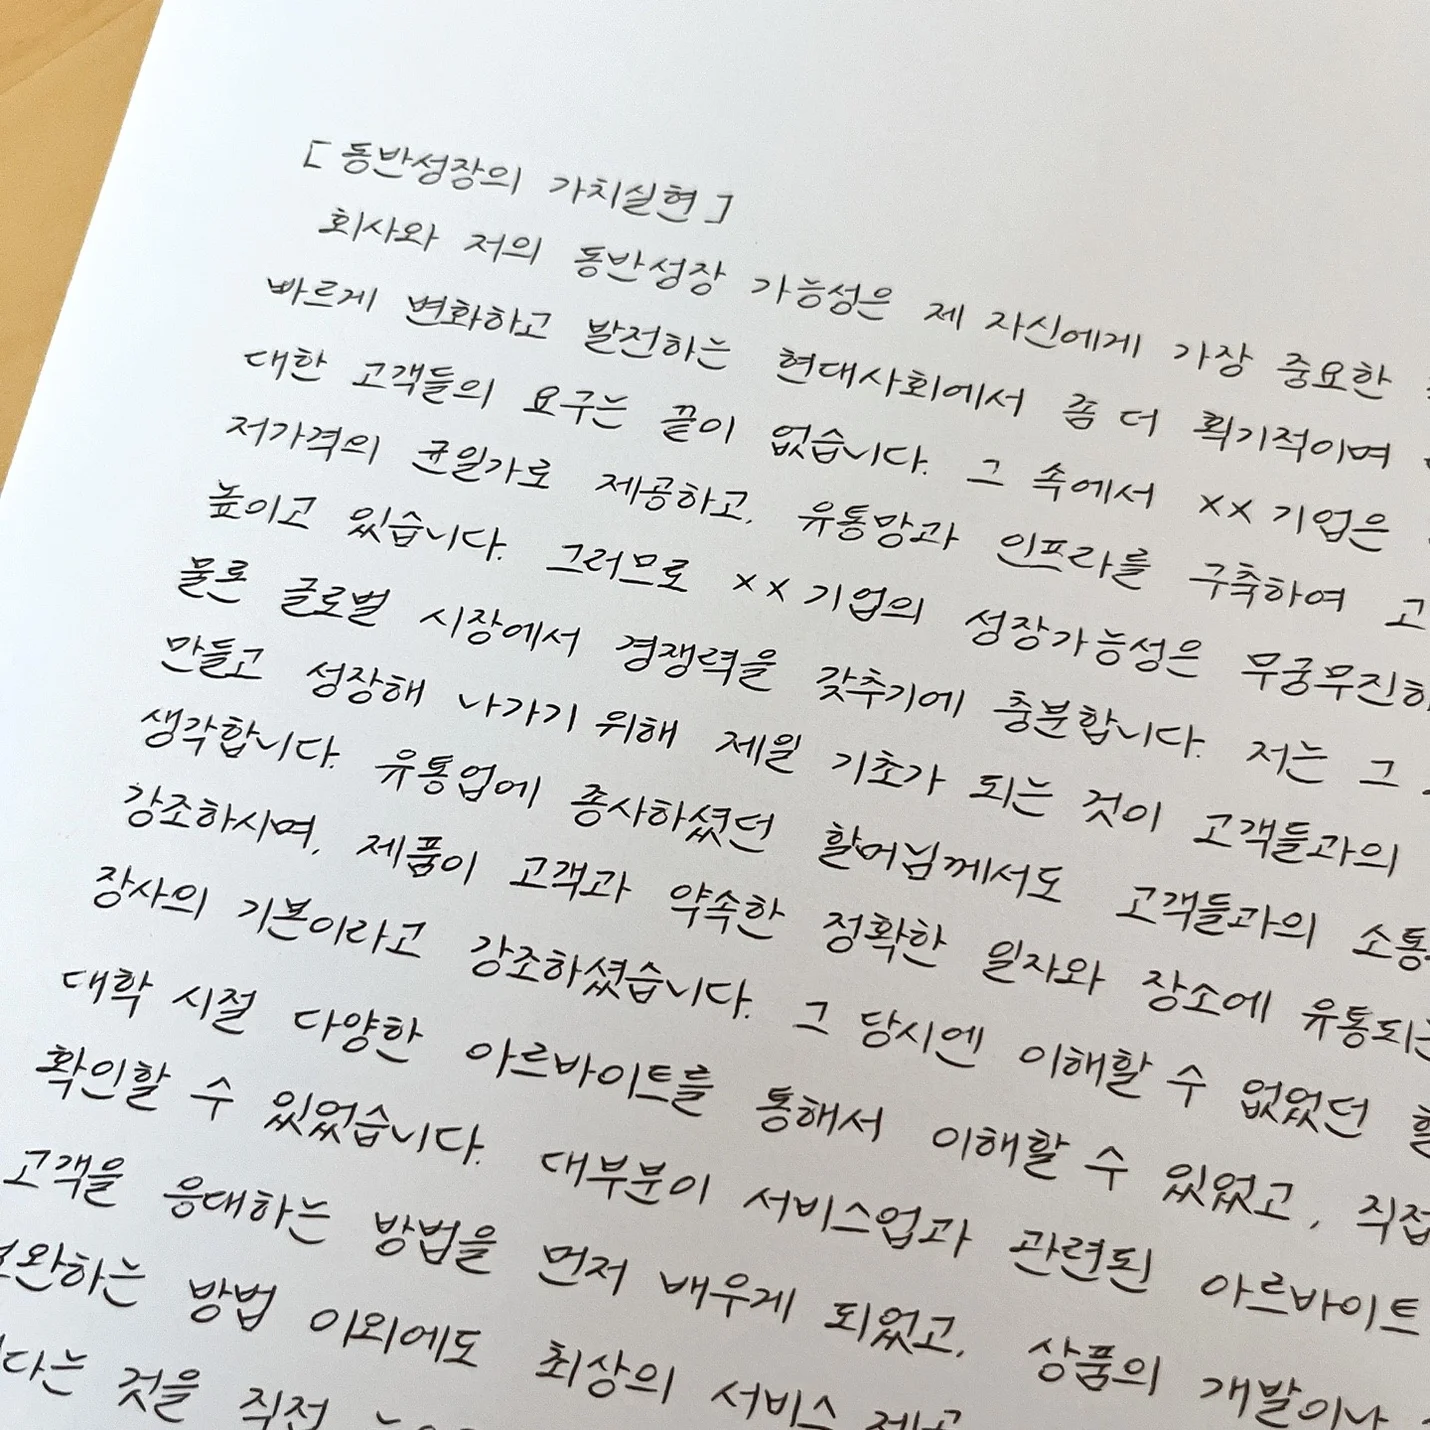 [ 동반성장의 가치실현 ]
회사와 저의 동반성장 가능성은 제 자신에게 가장 중요한
빠르게 변화하고 발전하는 현대사회에서 좀 더 획기적이며
대한 고객들의 요구는 끝이 없습니다. 그 속에서 xx 기업은
저가격의 균일가로 제공하고, 유통망과 인프라를 구축하여 고
높이고 있습니다. 그러므로 xx 기업의 성장가능성은 무궁무진하
물론 글로벌 시장에서 경쟁력을 갖추기에 충분합니다. 저는 그
만들고 성장해 나가기 위해 제일 기초가 되는 것이 고객들과의
생각합니다. 유통업에 종사하셨던 할머님께서도 고객들과의 소통
강조하시며, 제품이 고객과 약속한 정확한 일자와 장소에 유통되는
장사의 기본이라고 강조하셨습니다. 그 당시엔 이해할 수 없었던 할
대학 시절 다양한 아르바이트를 통해서 이해할 수 있었고, 직접
확인할 수 있었습니다. 대부분이 서비스업과 관련된 아르바이트
고객을 응대하는 방법을 먼저 배우게 되었고, 상품의 개발이나
보완하는 방법 이외에도 최상의 서비스 제공
다는 것을 직접